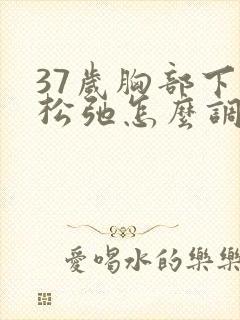 37歲胸部下
松弛怎麼調
愛喝水的樂樂